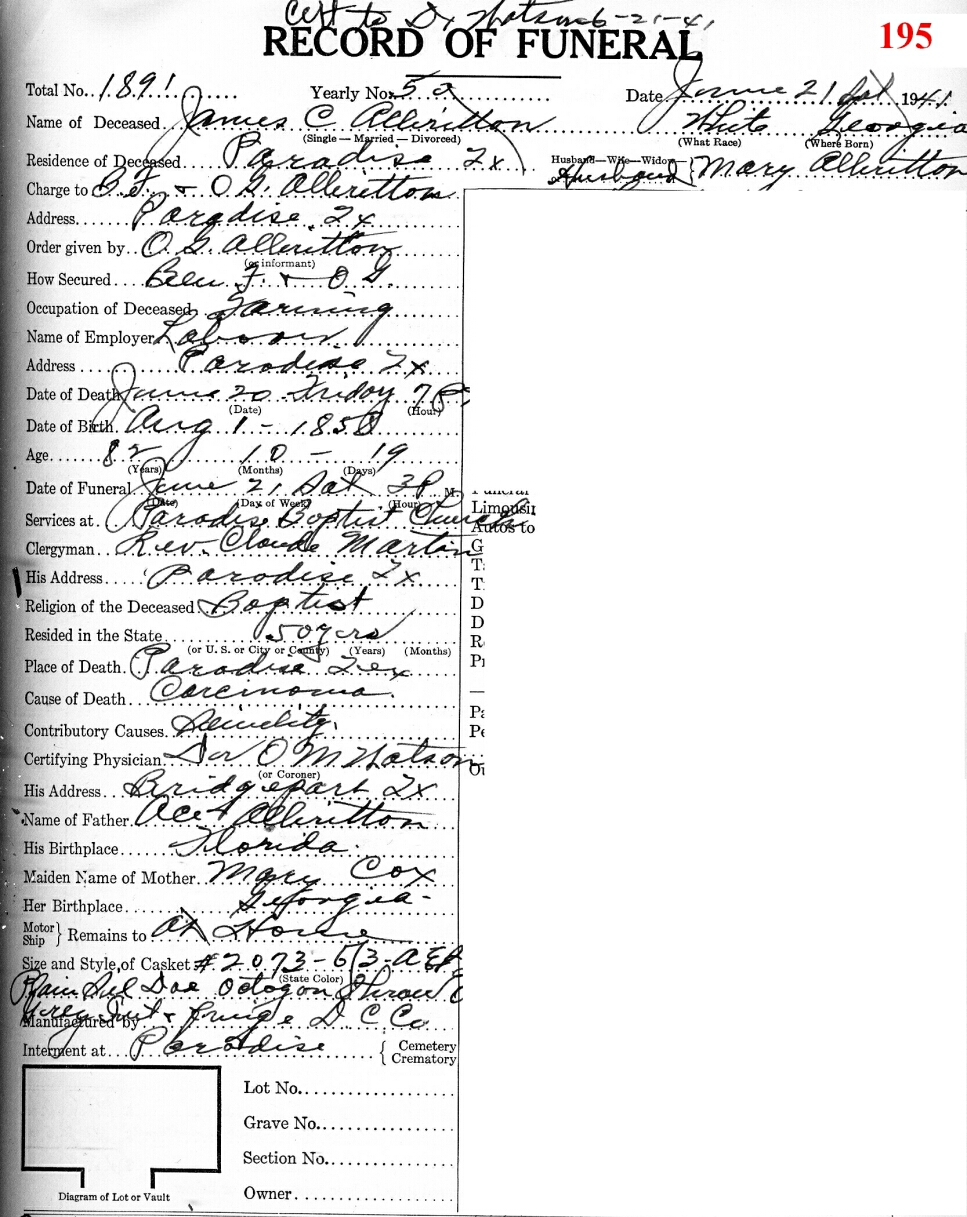 Cert to Dr Watson 6-21-41
195
RECORD OF FUNERAL
Total No. 1891 Yearly No. 52 Date June 21 Sat 1941
Name of Deceased James C Allbritton White Georgia
(Single — Married — Divorced) (What Race) (Where Born)
Residence of Deceased Paradise Tx Husband—Wife—Widow Husband } Mary Allbritton
Charge to & O. G. Allbritton
Address Paradise Tx
Order given by O. G. Allbritton
(or informant)
How Secured Ben F. & O G.
Occupation of Deceased Farming
Name of Employer Labour
Address Paradise Tx
Date of Death June 20 Friday 7 P
(Date) (Hour)
Date of Birth Aug 1 - 1858
Age 82 10 - 19
(Years) (Months) (Days)
Date of Funeral June 21 Sat 3 P M.
(Date) (Day of Week) (Hour)
Services at Paradise Baptist Church
Limousin
Autos to
Clergyman Rev. Claude Martin G
His Address Paradise Tx T
T
Religion of the Deceased Baptist D
D
Resided in the State 50 yrs R
(or U. S. or City or County) (Years) (Months)
Place of Death Paradise Tex
Cause of Death Carcinoma
Contributory Causes
Certifying Physician Dr O M Watson
(or Coroner)
His Address Bridgeport Tx
Name of Father Allbritton
His Birthplace Florida
Maiden Name of Mother Mary Cox
Her Birthplace Georgia
Motor
Ship } Remains to At Home
Size and Style of Casket #2073-6/3-
(State Color)
Plain Sil Doe Octagon
Grey & D C Co
Manufactured by
Interment at Paradise { Cemetery
Crematory
Lot No.
Grave No.
Section No.
Owner
Diagram of Lot or Vault